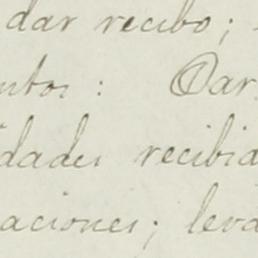 dar recibo;
ntos: Dar
dades recibid
aciones; leva